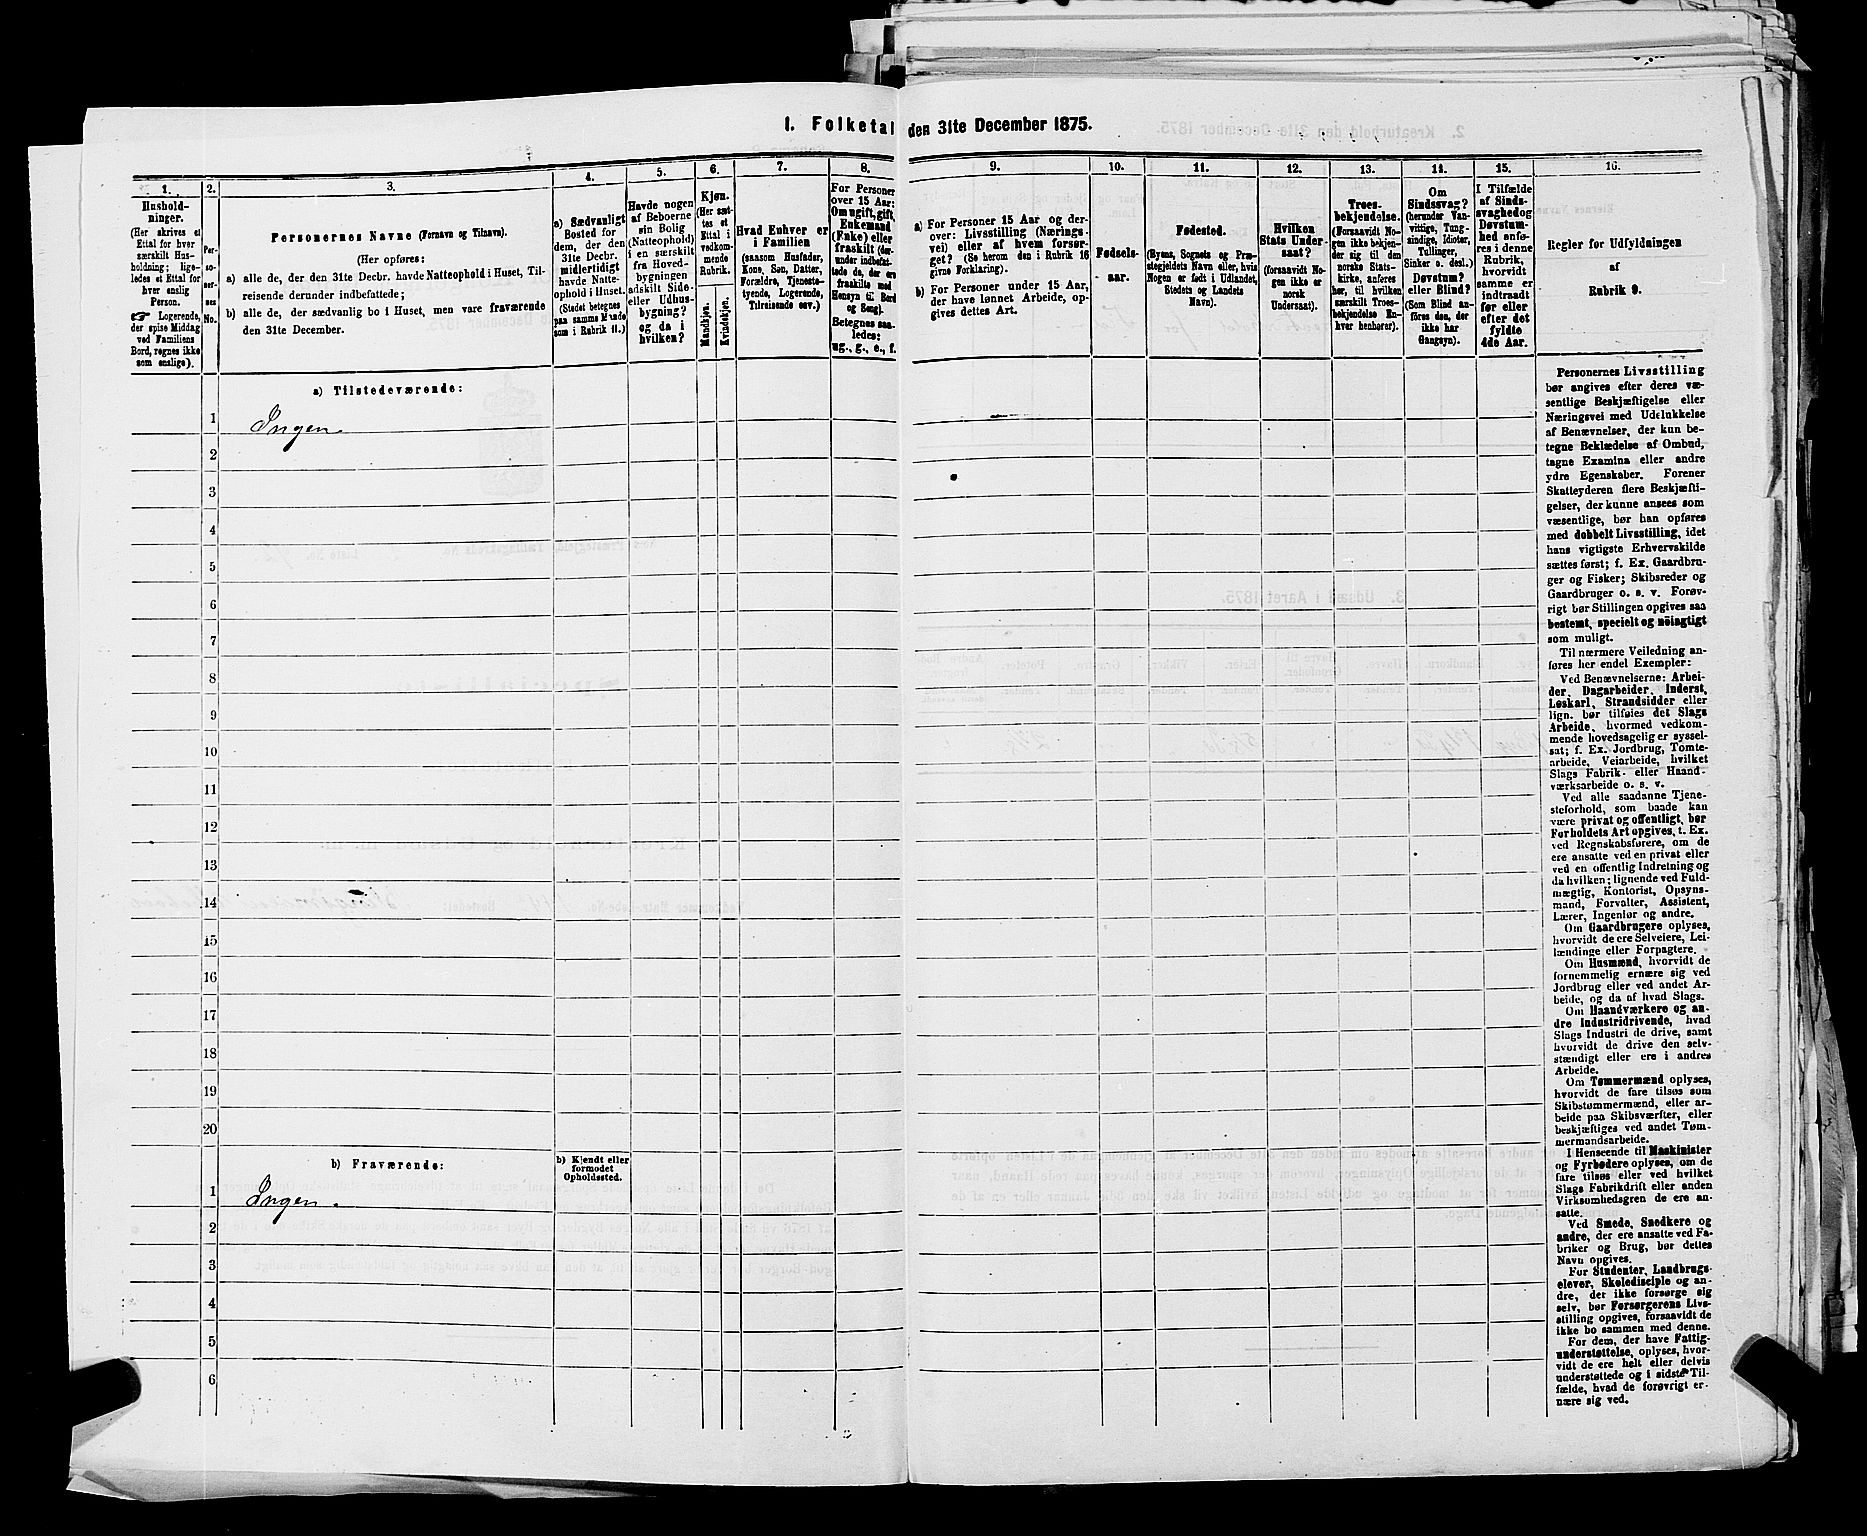 1. Folketal den 31te December 1875.
1. 2. 3. 4. 5. 6. 7. 8. 9. 10. 11. 12. 13. 14. 15. 16.
Hushold-
ninger.
(Her skrives et
Ettal for hver
særskilt Hus-
holdning; lige-
ledes et Ettal for
hver enslig
Person.
☞ Logerende,
der spise Middag
ved Familiens
Bord, regnes ikke
som enslige).
Per-
so-
ner-
nes
No.
Personernes Navne (Fornavn og Tilnavn).
(Her opføres:
a) alle de, der den 31te Decbr. havde Natteophold i Huset, Til-
reisende derunder indbefattede;
b) alle de, der sædvanlig bo i Huset, men vare fraværende
den 31te December.
a) Sædvanligt
Bosted for
dem, der den
31te Decbr.
midlertidigt
havde Natte-
ophold i Huset.
(Stedet betegnes
paa samme Maade
som i Rubrik 11.)
Havde nogen
af Beboerne
sin Bolig
(Natteophold)
i en særskilt
fra Hoved-
bygningen
adskilt Side-
eller Udhus-
bygning?
og da i
hvilken?
Kjøn.
(Her sæt-
tes et
Ettal i
vedkom-
mende
Rubrik.
Mandkjøn.
Kvindekjøn.
Hvad Enhver er
i Familien
(saasom Husfader,
Kone, Søn, Datter,
Forældre, Tjeneste-
tyende, Logerende,
Tilreisende osv.)
For Personer
over 15 Aar:
Om ugift, gift,
Enkemand
(Enke) eller
fraskilt (der-
under indbefat-
tede de, der ere
fraskilte med
Hensyn til Bord
og Seng).
Betegnes saa-
ledes:
ug., g., e., f.
a) For Personer 15 Aar og der-
over: Livsstilling (Nærings-
vei) eller af hvem forsør-
get? (Se herom den i Rubrik 16
givne Forklaring).
b) For Personer under 15 Aar,
der have lønnet Arbeide, op-
gives dettes Art.
Fødsels-
aar.
Fødested.
(Byens, Sognets og Præ-
stegjeldets Navn eller, hvis
Nogen er født i Udlandet,
Stedets og Landets
Navn).
Hvilken
Stats Under-
saat?
(forsaavidt No-
gen ikke er
norsk
Undersaat).
Troes-
bekjendelse.
(Forsaavidt No-
gen ikke bekjen-
der sig til den
norske Stats-
kirke, anføres
her, til hvilken
særskilt Troes-
bekjendelse En-
hver henhører).
Om
Sindssvag?
(herunder Van-
vittige, Tung-
sindige, Idioter,
Tullinger,
Sinker o. desl.)
Døvstum?
eller Blind?
(Som Blind an-
føres den, der
ikke har
Gangsyn).
I Tilfælde
af Sinds-
svaghed og
Døvstum-
hed anfø-
res i denne
Rubrik,
hvorvidt
samme er
indtraadt
før eller
efter det
fyldte
4de Aar.
Regler for Udfyldningen
af
Rubrik 9.
a) Tilstedeværende:
1 Ingen.
2
3
4
5
6
7
8
9
10
11
12
13
14
15
16
17
18
19
20
b) Fraværende:
b) Kjendt eller
formodet
Opholdssted.
1 Ingen.
2
3
4
5
6
Personernes Livsstilling
bør angives efter deres væ-
sentlige Beskjæftigelse eller
Næringsvei med Udelukkelse
af Benævnelser, der kun be-
tegne Beklædelse af Ombud,
tagne Examina eller andre
ydre Egenskaber. Forener
Skatteyderen flere Beskjæfti-
gelser, der kunne ansees som
væsentlige, bør han opføres
med dobbelt Livsstilling, idet
hans vigtigste Erhvervskilde
sættes først; f. Ex. Gaardbru-
ger og Fisker; Skibsreder og
Gaardbruger o. s. v. Forøv-
rigt bør Stillingen opgives saa
bestemt, specielt og nöiagtigt
som muligt.
Til nærmere Veiledning an-
føres her endel Exempler:
Ved Benævnelserne: Arbei-
der, Dagarbeider, Inderst,
Løskarl, Strandsidder eller
lign. bør tilføies det Slags
Arbeide, hvormed vedkom-
mende hovedsagelig er syssel-
sat; f. Ex. Jordbrug, Tomte-
arbeide, Veiarbeide, hvilket
Slags Fabrik- eller Haand-
værksarbeide o. s. v.
Ved alle saadanne Tjene-
steforhold, som baade kan
være privat og offentligt, bør
Forholdets Art opgives, t. Ex.
ved Regnskabsførere, om de
ere ansatte ved en privat eller
ved en offentlig Indretning og
da hvilken; lignende ved Fuld-
mægtig, Kontorist, Opsyns-
mand, Forvalter, Assistent,
Lærer, Ingeniør og andre.
Om Gaardbrugere oplyses,
hvorvidt de ere Selveiere, Lei-
lændinge eller Forpagtere.
Om Husmænd, hvorvidt de
fornemmelig ernære sig ved
Jordbrug eller ved andet Ar-
beide, og da af hvad Slags.
Om Haandværkere og an-
dre Industridrivende, hvad
Slags Industri de drive, samt
hvorvidt de drive den selv-
stændigt eller ere i andres
Arbeide.
Om Tømmermænd oplyses,
hvorvidt de fare tilsøs som
Skibstømmermænd, eller ar-
beide paa Skibsværfter, eller
beskjæftiges ved andet Tøm-
mermandsarbeide.
I Henseende til Maskinister
og Fyrbødere oplyses, om de
fare tilsøs eller ved hvilket
Slags Fabrikdrift eller anden
Virksomhedsgren de ere an-
satte.
Ved Smede, Snedkere og
andre, der ere ansatte ved Fa-
briker og Brug, bør dettes
Navn opgives.
For Studenter, Landbrugs-
elever, Skoledisciple og an-
dre, der ikke forsørge sig
selv, bør Forsørgerens Livs-
stilling opgives, forsaavidt de
ikke bo sammen med denne.
For dem, der have Fattig-
understøttelse, oplyses, hvor-
vidt de ere helt eller delvis
understøttede og i sidste Til-
fælde, hvad de forøvrigt er-
nære sig ved.